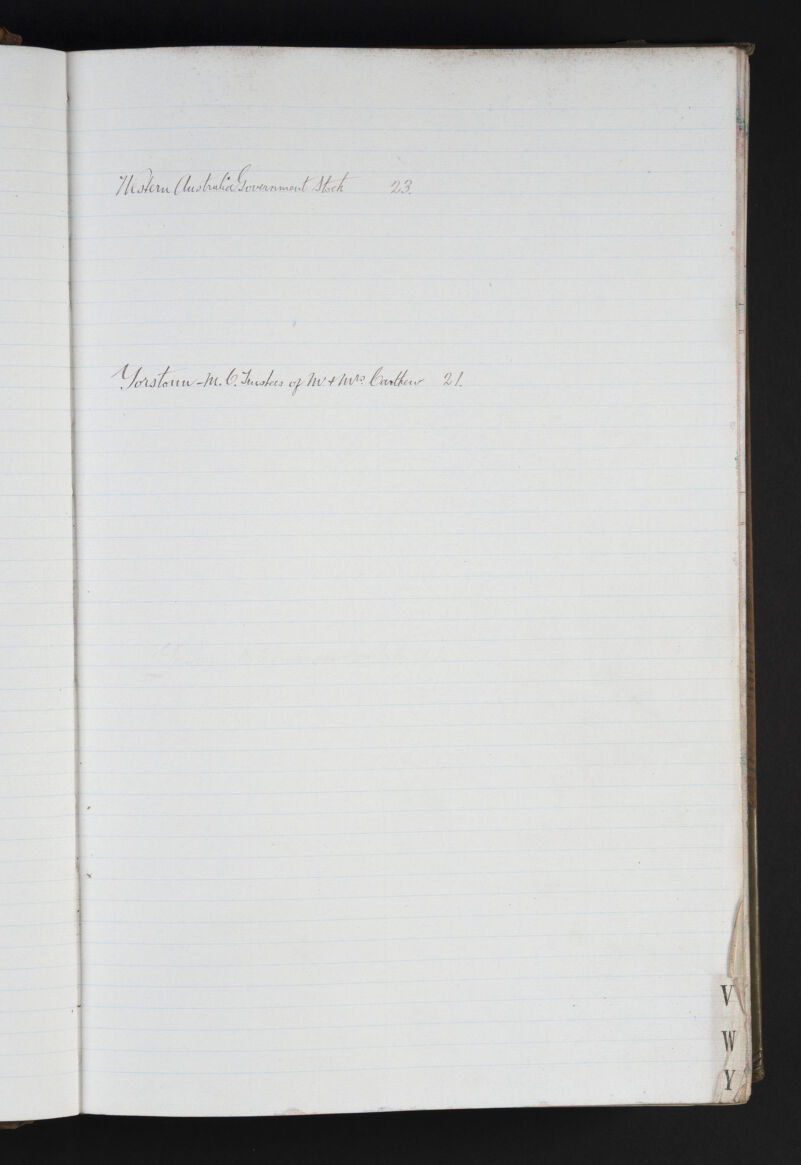 Western Australia Government Stock 23.
Yorstoun - M. C. Trustees of Mr & Mrs Carthew 21.
V
W
Y